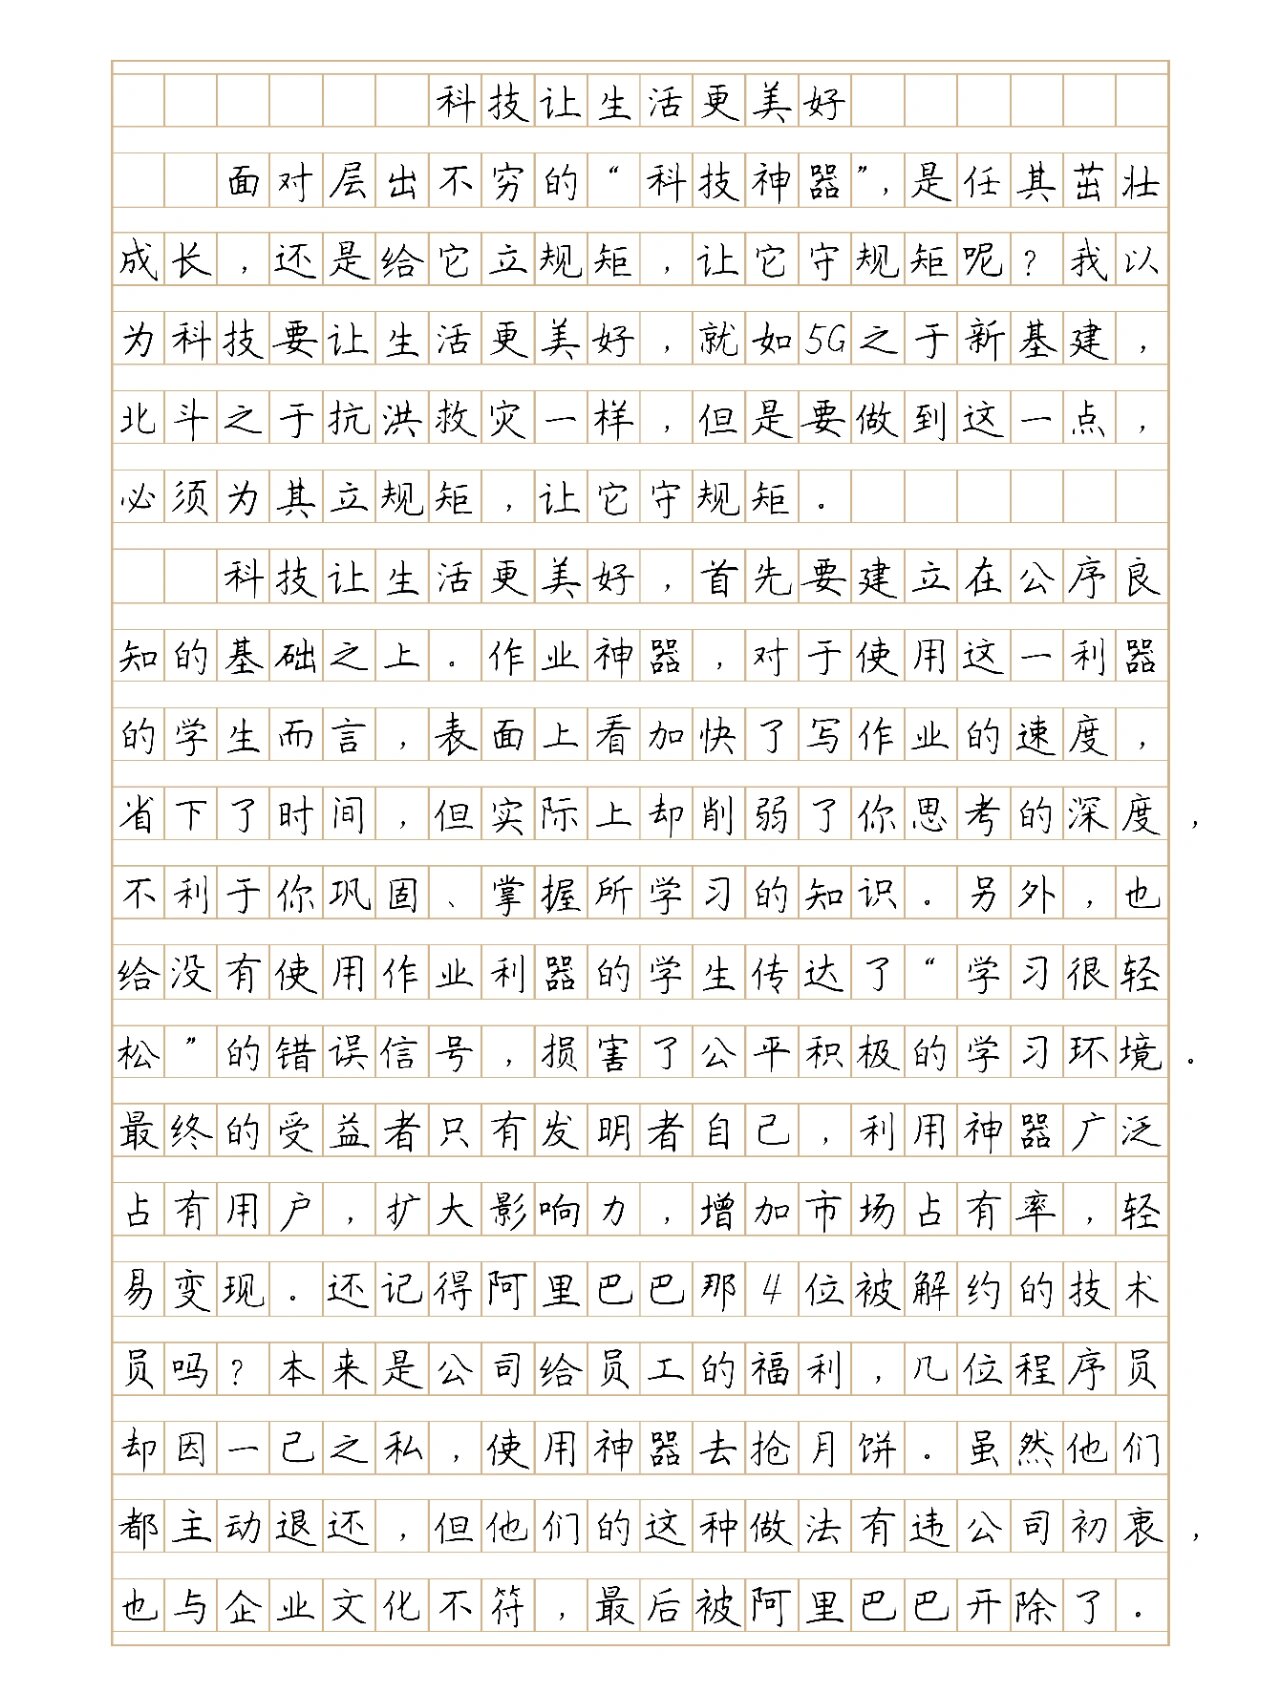 科技让生活更美好
面对层出不穷的“科技神器”,是任其茁壮
成长,还是给它立规矩,让它守规矩呢?我以
为科技要让生活更美好,就如5G之于新基建,
北斗之于抗洪救灾一样,但是要做到这一点,
必须为其立规矩,让它守规矩.
科技让生活更美好,首先要建立在公序良
知的基础之上.作业神器,对于使用这一利器
的学生而言,表面上看加快了写作业的速度,
省下了时间,但实际上却削弱了你思考的深度,
不利于你巩固、掌握所学习的知识.另外,也
给没有使用作业利器的学生传达了“学习很轻
松”的错误信号,损害了公平积极的学习环境.
最终的受益者只有发明者自己,利用神器广泛
占有用户,扩大影响力,增加市场占有率,轻
易变现.还记得阿里巴巴那4位被解约的技术
员吗?本来是公司给员工的福利,几位程序员
却因一己之私,使用神器去抢月饼.虽然他们
都主动退还,但他们的这种做法有违公司初衷,
也与企业文化不符,最后被阿里巴巴开除了.